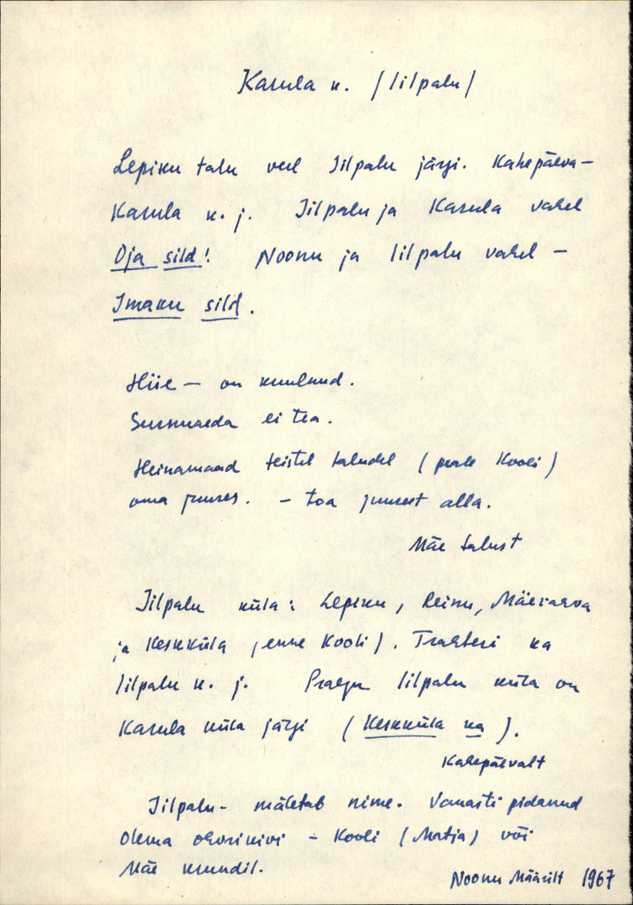 Karula k. /Iilpalu/
Lepiku talu veel Iilpalu järgi. Kahepäeva-
Karula k. j. Iilpalu ja Karula vahel
Oja sild! Noonu ja Iilpalu vahel -
Imaku sild.
Hiie - on kuulnud.
Surnuaeda ei tea.
Heinamaad teistel taludel (peale Kooli)
oma juures. - toa juurest alla.
Mäe talust
Iilpalu küla: Lepiku, Reinu, Mäe
ja Keskküla (enne Kooli). Trahteri ka
Iilpalu k. j. Praegu Iilpalu küla on
Karula küla järgi (Keskküla ka).
Kahepäevalt
Iilpalu - mäletab nime. Vanasti pidanud
olema ohvrikivi - Kooli (Matja) või
Mäe krundil.
Noonu Määrilt 1967